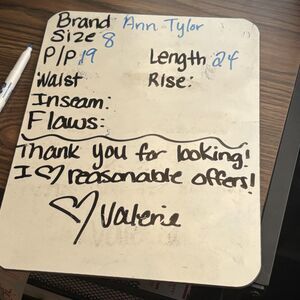 Brand Ann Tylor
Size 8
P/P 19 Length 24
Waist Rise:
Inseam:
Flaws:
Thank you for looking!
I ♡ reasonable offers!
♡ Valerie